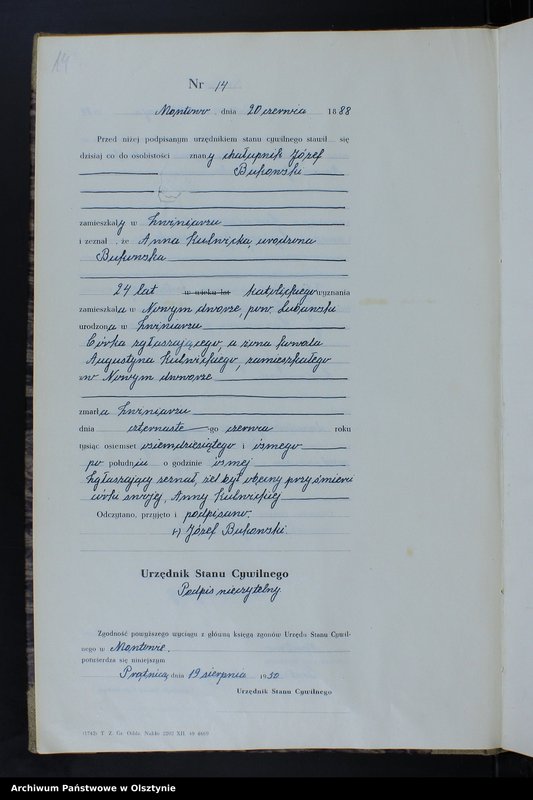 14
Nr 14
Montowo, dnia 20 czerwca 1888
Przed niżej podpisanym urzędnikiem stanu cywilnego stawił się
dzisiaj co do osobistości znany chałupnik Józef
Bukowski
zamieszkały w Zwiniarzu
i zeznał, że Anna Kulwicka, urodzona
Bukowska
24 lat w wieku lat katolickiego wyznania
zamieszkała w Nowym dworze, pow. Lubawski
urodzona w Zwiniarzu
Córka zgłaszającego, a żona kowala
Augustyna Kulwickiego, zamieszkałego
w Nowym dworze
zmarła Zwiniarzu
dnia czternaste-go czerwca roku
tysiąc osiemset osiemdziesiątego i ósmego
po południu o godzinie ósmej
Zgłaszający zeznał, że był obecny przy śmierci
córki swojej, Anny Kulwickiej
Odczytano, przyjęto i podpisano:
-) Józef Bukowski.
Urzędnik Stanu Cywilnego
Podpis nieczytelny
Zgodność powyższego wyciągu z główną księgą zgonów Urzędu Stanu Cywil-
nego w Montowie.
potwierdza się niniejszym
Prątnica, dnia 19 sierpnia 1950
Urzędnik Stanu Cywilnego
(1743) T. Z. Gr. Oddz. Nakło 2202 XII. 49 4669
Archiwum Państwowe w Olsztynie